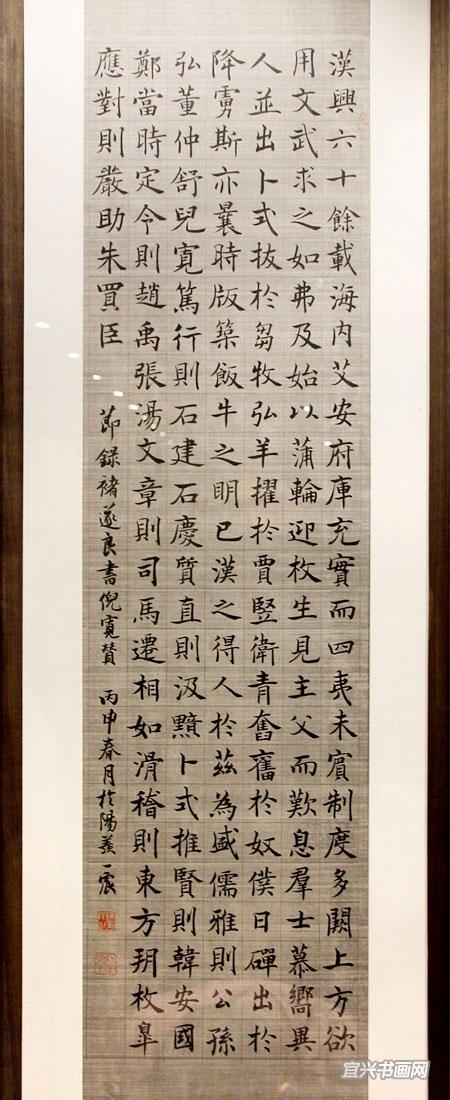 漢興六十餘載海内艾安府庫充實而四夷未賓制度多闕上方欲
用文武求之如弗及始以蒲輪迎枚生見主父而歎息羣士慕嚮異
人並出卜式拔於芻牧弘羊擢於賈豎衛青奮舊於奴僕日磾出於
降虜斯亦曩時版築飯牛之明已漢之得人於茲為盛儒雅則公孫
弘董仲舒兒寬篤行則石建石慶質直則汲黯卜式推賢則韓安國
鄭當時定令則趙禹張湯文章則司馬遷相如滑稽則東方朔枚皐
應對則嚴助朱買臣
節録褚遂良書倪寬贊 丙申春月於陽羨一震
宜兴书画网